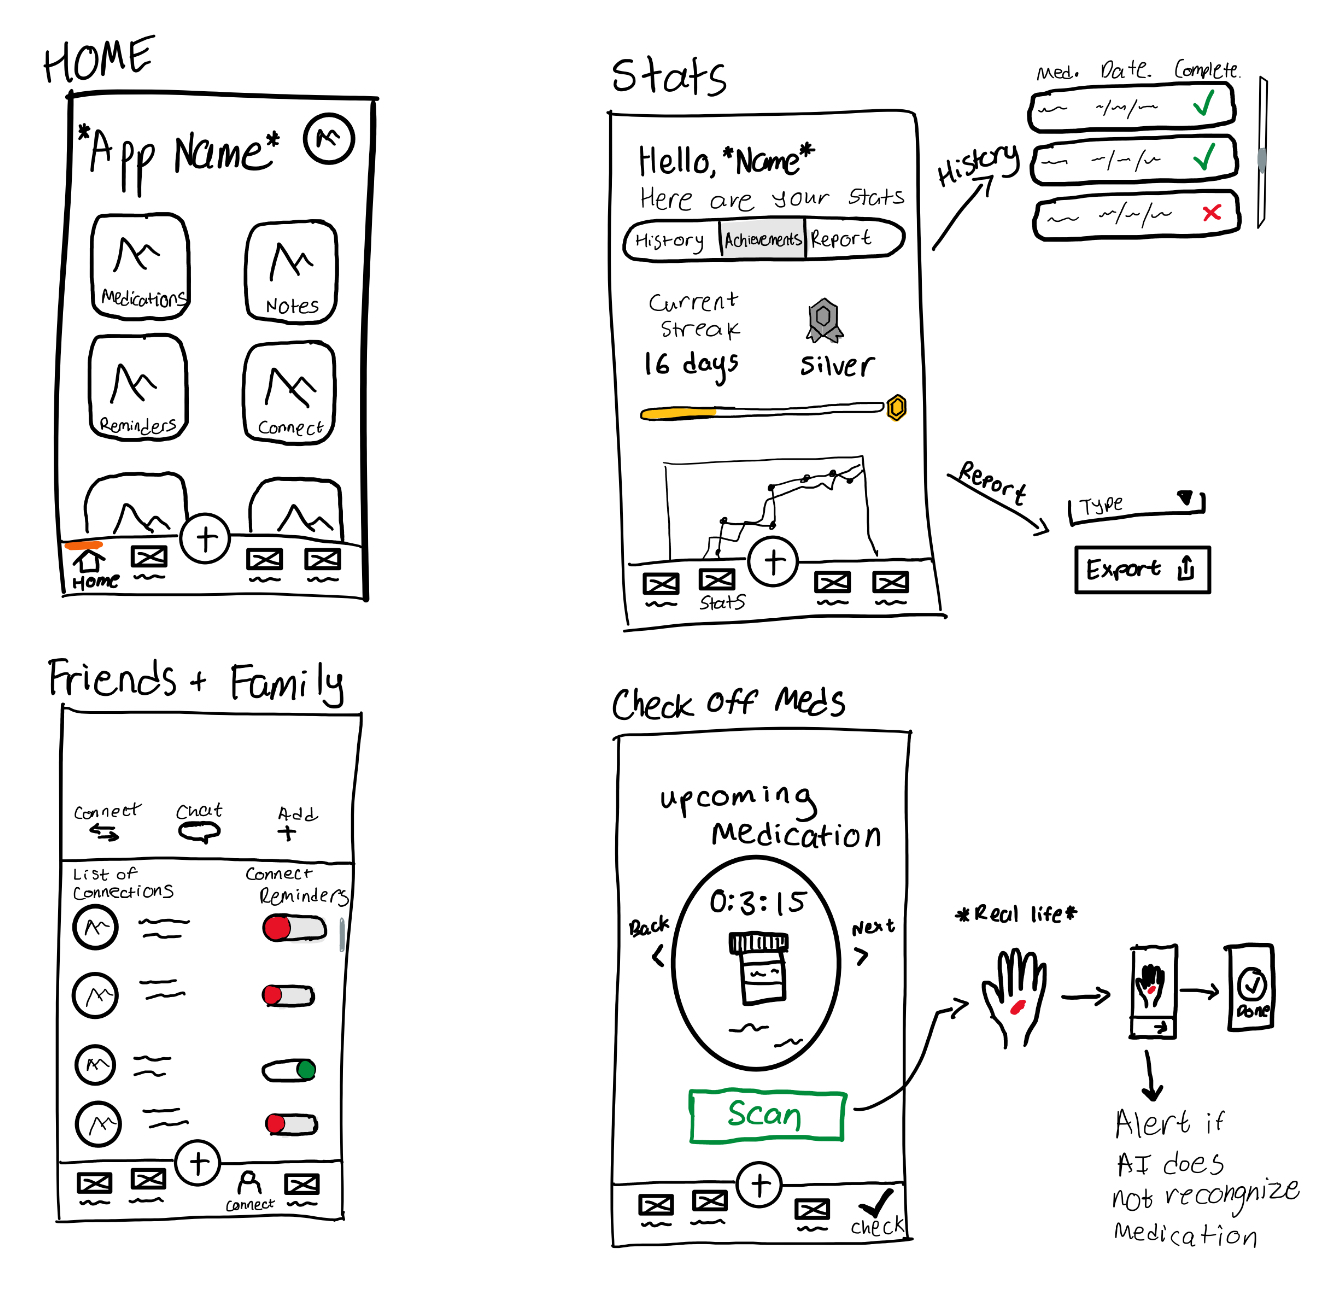 HOME
*App Name*
Medications
Notes
Reminders
Connect
Home
Stats
Hello, *Name*
Here are your Stats
History
Achievements
Report
Current
Streak
16 days
Silver
Stats
History
Med. Date. Complete.
Report
Type
Export
Friends + Family
Connect
Chat
Add
List of
Connections
Connect
Reminders
Connect
Check Off Meds
upcoming
Medication
0:3:15
Back
Next
Scan
check
*Real life*
Done
Alert if
AI does
not recongnize
Medication